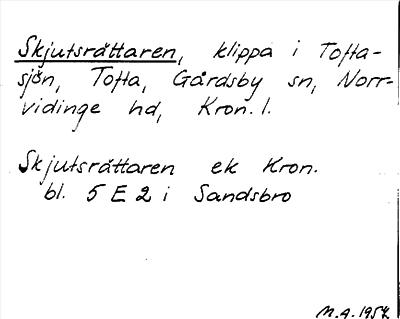 Skjutsrättaren, klippa i Tofta-
sjön, Tofta, Gårdsby sn, Norr-
vidinge hd, Kron. l.
Skjutsrättaren ek Kron.
bl. 5 E 2 i Sandsbro
M.A. 1954